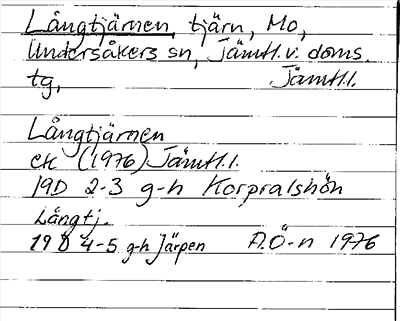 Långtjärnen, tjärn, Mo,
Undersåkers sn, Jämtl. v. doms.
tg, Jämtl.l.
Långtjärnen
ek (1976) Jämtl.l.
19D 2-3 g-h Korpralshön
Långtj.
19 D 4-5 g-h Järpen A.Ö-n 1976